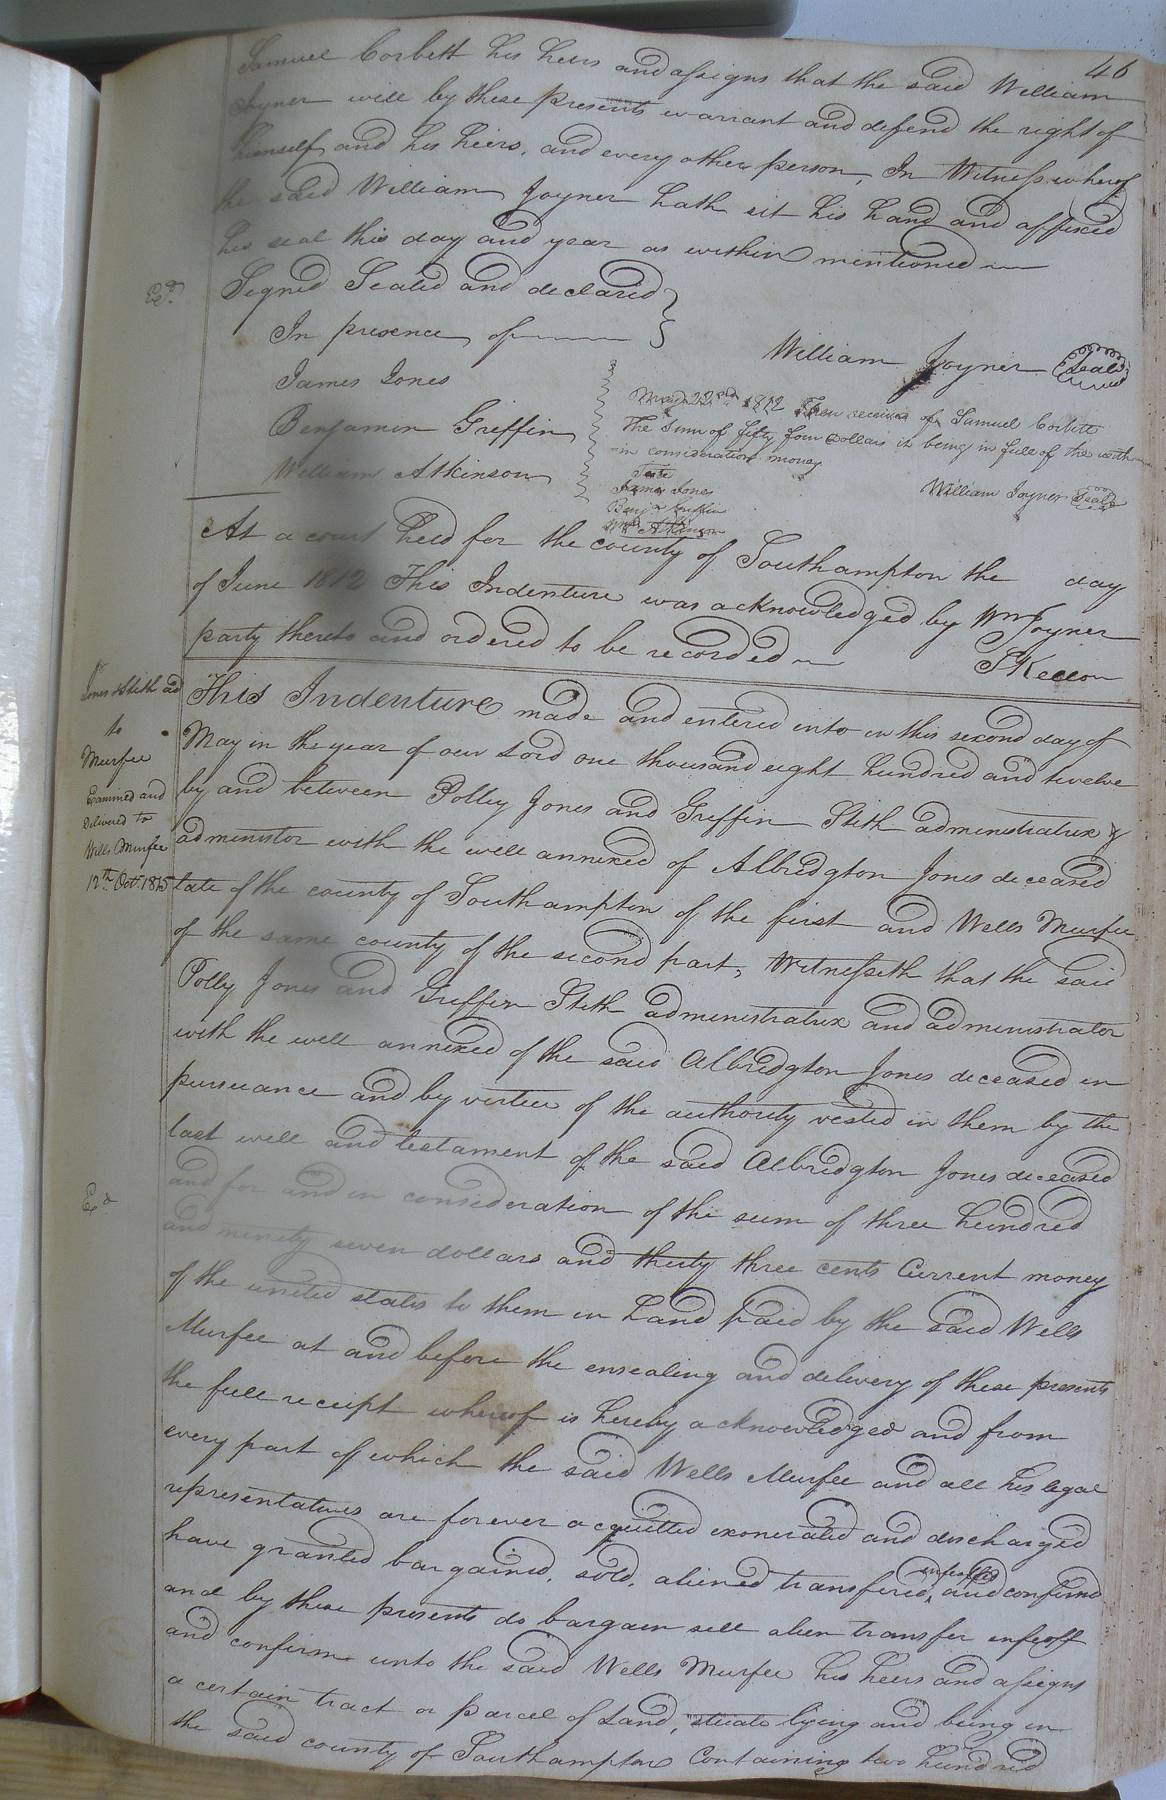 46
Samuel Corbett his heirs and assigns that the said William
Joyner will by these presents warrant and defend the right of
himself and his heirs, and every other person, In Witness whereof
the said William Joyner hath sit his hand and affixed
his seal this day and year as within mentioned
Signed Sealed and declared
In presence of
William Joyner Seal
James Jones
Benjamin Griffin
William Atkinson
May 22nd 1812 Then received of Samuel Corbett
The Sum of fifty four Dollars it being in full of the within
in consideration money
Teste
James Jones
Benj Griffin
Wm Atkinson
William Joyner Seal
At a court held for the county of Southampton the day
of June 1812 This Indenture was acknowledged by Wm Joyner
party thereto and ordered to be recorded
S Kello
Jones & Stith ad
to
Murfee
Examined and
delivered to
Wells Murfee
12th Oct. 1815
This Indenture made and entered into on this second day of
May in the year of our Lord one thousand eight hundred and twelve
by and between Polley Jones and Griffin Stith administratrix &
administor with the will annexed of Albridgton Jones deceased
late of the county of Southampton of the first and Wells Murfee
of the same county of the second part, Witnesseth that the said
Polly Jones and Griffin Stith administratrix and administrator
with the will annexed of the said Albridgton Jones deceased in
pursuance and by vertue of the authority vested in them by the
last will and testament of the said Albridgton Jones deceased
and for and in consideration of the sum of three hundred
and ninety seven dollars and thirty three cents Current money
of the united states to them in hand paid by the said Wells
Murfee at and before the ensealing and delivery of these presents
the full receipt whereof is hereby acknowledged and from
every part of which the said Wells Murfee and all his legal
representatives are forever acquitted exonerated and discharged
have granted bargained, sold, aliened transfered, enfeoffed and confirmd
and by these presents do bargain sell alien transfer enfeoff
and confirm unto the said Wells Murfee his heirs and assigns
a certain tract or parcel of Land, situate lying and being in
the said county of Southampton Containing two hundred